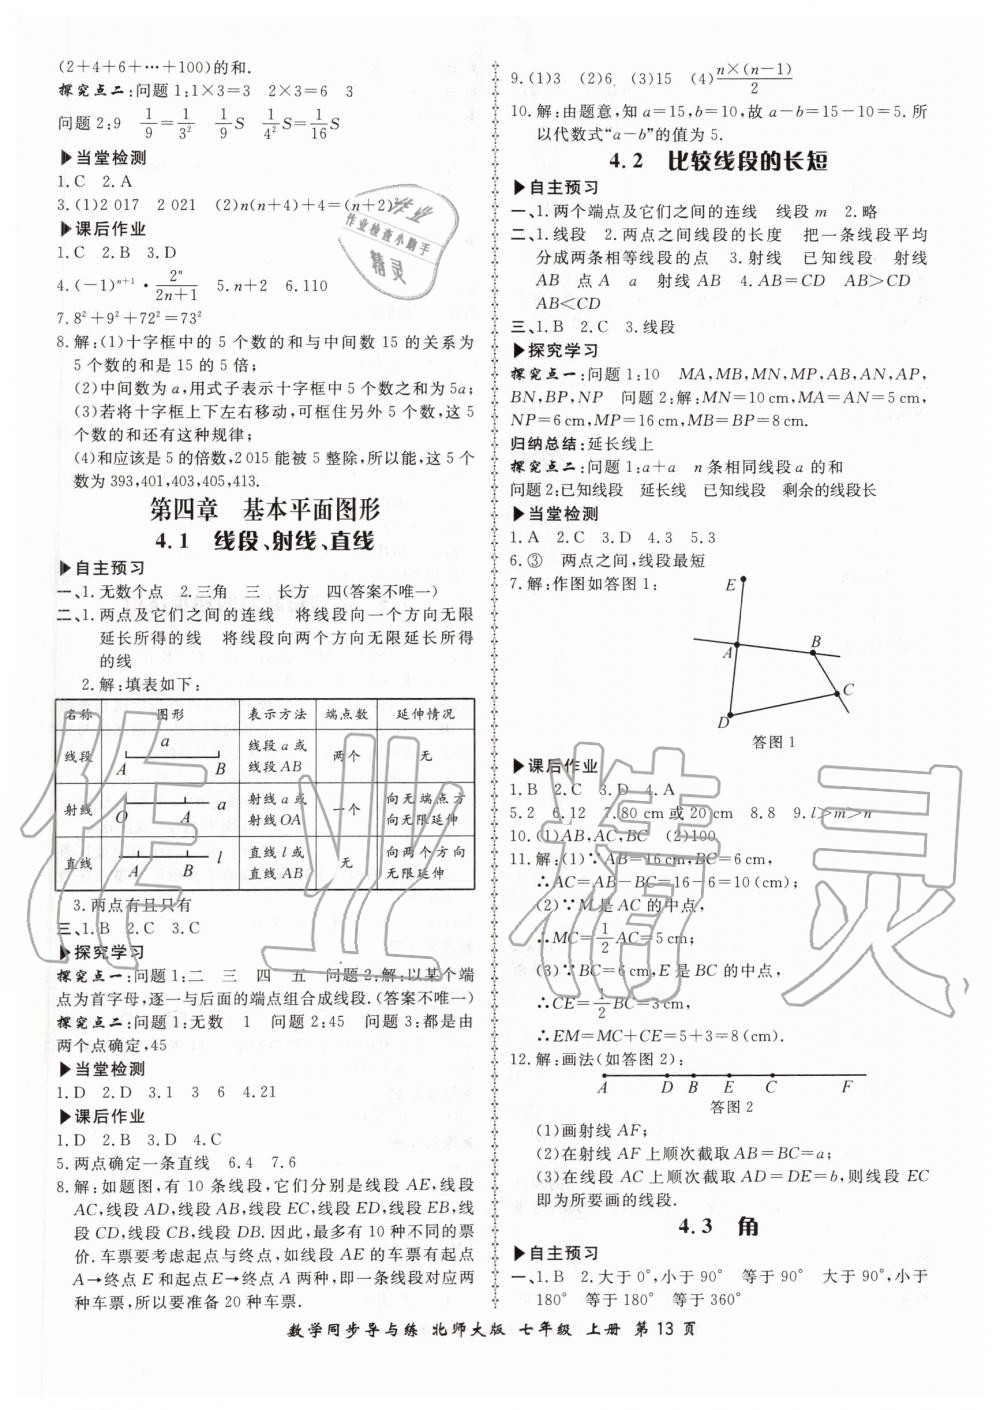 (2+4+6+…+100)的和.
探究点二:问题1:1×3=3 2×3=6 3
问题2:9 1/9=1/3² 1/9 S 1/4² S=1/16 S
▶当堂检测
1.C 2.A
3.(1)2 017 2 021 (2)n(n+4)+4=(n+2)²
▶课后作业
1.C 2.B 3.D
4.(-1)ⁿ⁺¹·2ⁿ/(2n+1) 5.n+2 6.110
7.8²+9²+72²=73²
8.解:(1)十字框中的5个数的和与中间数15的关系为
5个数的和是15的5倍;
(2)中间数为a,用式子表示十字框中5个数之和为5a;
(3)若将十字框上下左右移动,可框住另外5个数,这5
个数的和还有这种规律;
(4)和应该是5的倍数,2 015能被5整除,所以能,这5个
数为393,401,403,405,413.
第四章 基本平面图形
4.1 线段、射线、直线
▶自主预习
一、1.无数个点 2.三角 三 长方 四(答案不唯一)
二、1.两点及它们之间的连线 将线段向一个方向无限
延长所得的线 将线段向两个方向无限延长所得
的线
2.解:填表如下:
名称 图形 表示方法 端点数 延伸情况
线段 a A B 线段a或线段AB 两个 无
射线 O A a 射线a或射线OA 一个 向无端点方向无限延伸
直线 A B l 直线l或直线AB 无 向两个方向无限延伸
3.两点有且只有
三、1.B 2.C 3.C
▶探究学习
探究点一:问题1:二 三 四 五 问题2:解:以某个端
点为首字母,逐一与后面的端点组合成线段.(答案不唯一)
探究点二:问题1:无数 1 问题2:45 问题3:都是由
两个点确定,45
▶当堂检测
1.D 2.D 3.1 3 6 4.21
▶课后作业
1.D 2.B 3.D 4.C
5.两点确定一条直线 6.4 7.6
8.解:如题图,有10条线段,它们分别是线段AE,线段
AC,线段AD,线段AB,线段EC,线段ED,线段EB,线
段CD,线段CB,线段DB.因此,最多有10种不同的票
价.车票要考虑起点与终点,如线段AE的车票有起点
A→终点E和起点E→终点A两种,即一条线段对应两
种车票,所以要准备20种车票.
9.(1)3 (2)6 (3)15 (4)n×(n-1)/2
10.解:由题意,知a=15,b=10,故a-b=15-10=5.所
以代数式“a-b”的值为5.
4.2 比较线段的长短
▶自主预习
一、1.两个端点及它们之间的连线 线段m 2.略
二、1.线段 2.两点之间线段的长度 把一条线段平均
分成两条相等线段的点 3.射线 已知线段 射线
AB 点A a 射线AB 4.AB=CD AB>CD
AB<CD
三、1.B 2.C 3.线段
▶探究学习
探究点一:问题1:10 MA,MB,MN,MP,AB,AN,AP,
BN,BP,NP 问题2:解:MN=10 cm,MA=AN=5 cm,
NP=6 cm,MP=16 cm,MB=BP=8 cm.
归纳总结:延长线上
探究点二:问题1:a+a n条相同线段a的和
问题2:已知线段 延长线 已知线段 剩余的线段长
▶当堂检测
1.A 2.C 3.D 4.3 5.3
6.③ 两点之间,线段最短
7.解:作图如答图1:
E
A B
C
D
答图1
▶课后作业
1.B 2.C 3.D 4.A
5.2 6.12 7.80 cm或20 cm 8.8 9.l>m>n
10.(1)AB,AC,BC (2)100
11.解:(1)∵AB=16 cm,BC=6 cm,
∴AC=AB-BC=16-6=10(cm);
(2)∵M是AC的中点,
∴MC=1/2 AC=5 cm;
(3)∵BC=6 cm,E是BC的中点,
∴CE=1/2 BC=3 cm,
∴EM=MC+CE=5+3=8(cm).
12.解:画法(如答图2):
A D B E C F
答图2
(1)画射线AF;
(2)在射线AF上顺次截取AB=BC=a;
(3)在线段AC上顺次截取AD=DE=b,则线段EC
即为所要画的线段.
4.3 角
▶自主预习
一、1.B 2.大于0°,小于90° 等于90° 大于90°,小于
180° 等于180° 等于360°
数学同步导与练 北师大版 七年级 上册 第13页
作业
作业检查小助手
精灵
作业精灵